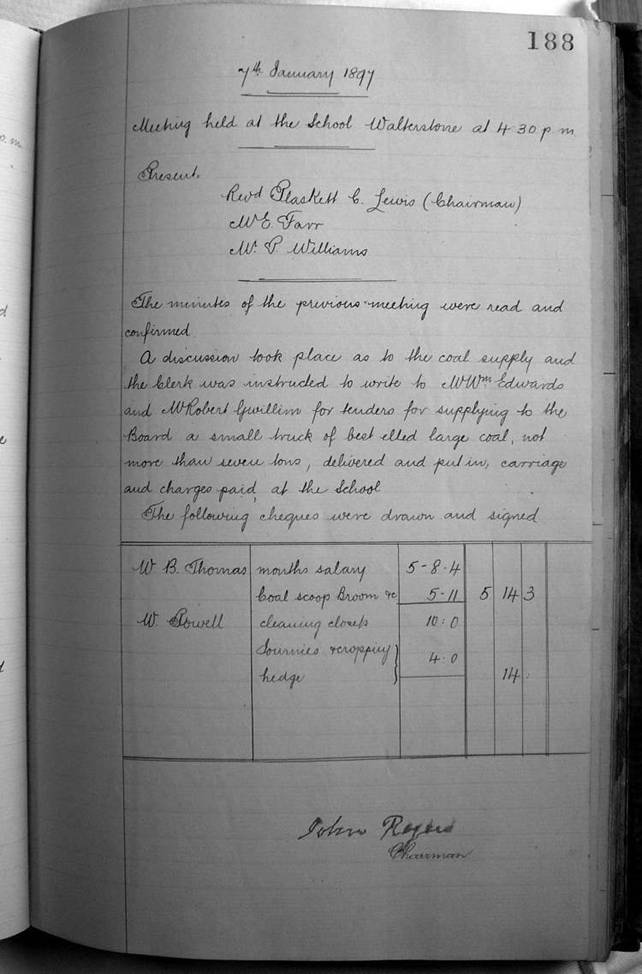 188
7th January 1897
Meeting held at the School Walterstone at 4 30 p m
Present.
Revd Plaskett C. Lewis (Chairman)
Mr E. Farr
Mr. P. Williams
The minutes of the previous meeting were read and
confirmed
A discussion took place as to the coal supply and
the Clerk was instructed to write to Mr Wm Edwards
and Mr Robert Gwillim for tenders for supplying to the
Board a small truck of best elled large coal, not
more than seven tons, delivered and put in, carriage
and charges paid, at the School
The following cheques were drawn and signed
W. B. Thomas months salary 5-8-4
Coal scoop Broom &c 5-11 5 14 3
W. Powell cleaning closets 10:0
Journies & cropping
hedge 4.0 14.
John Rogers
Chairman